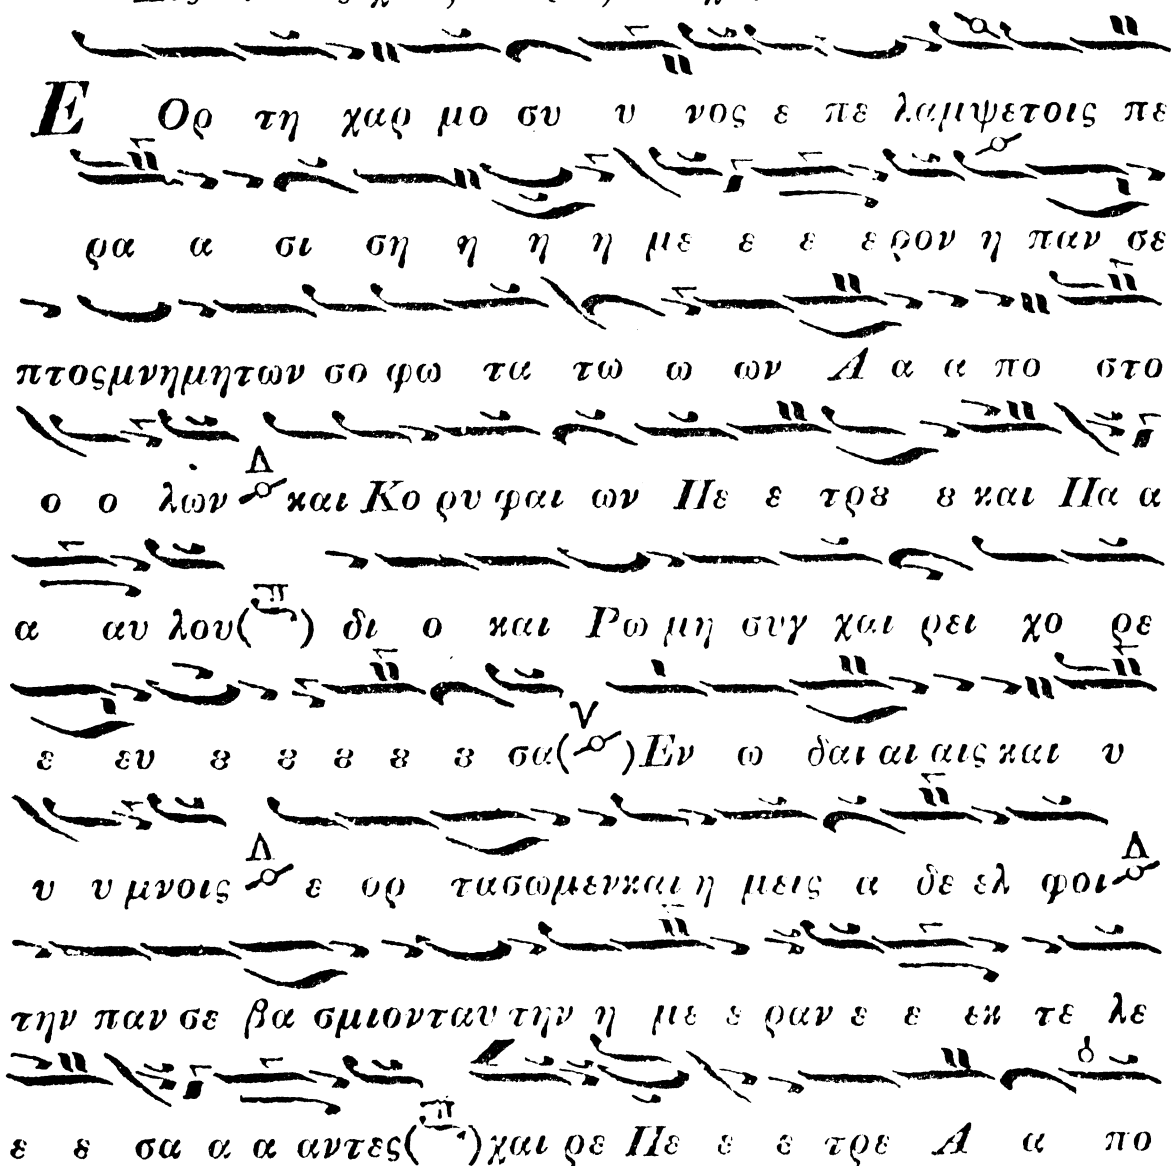 Ε Ορ τη χαρ μο συ υ νος ε πε λαμψετοις πε
ρα α σι ση η η η με ε ε ε ρον η παν σε
πτοςμνημητων σο φω τα τω ω ων Α α α πο στο
ο ο λων και Κο ρυ φαι ων Πε ε τρȣ ȣ και Πα α
α αυ λου(π) δι ο και Ρω μη συγ χαι ρει χο ρε
ε ευ ȣ ȣ ȣ ȣ ȣ σα( )Εν ω δαι αι αις και υ
υ υ μνοις ε ορ τασωμενκαι η μεις α δε ελ φοι
την παν σε βα σμιονταυ την η με ε ραν ε ε εκ τε λε
ε ε σα α α αντες(π)χαι ρε Πε ε ε τρε Α α πο